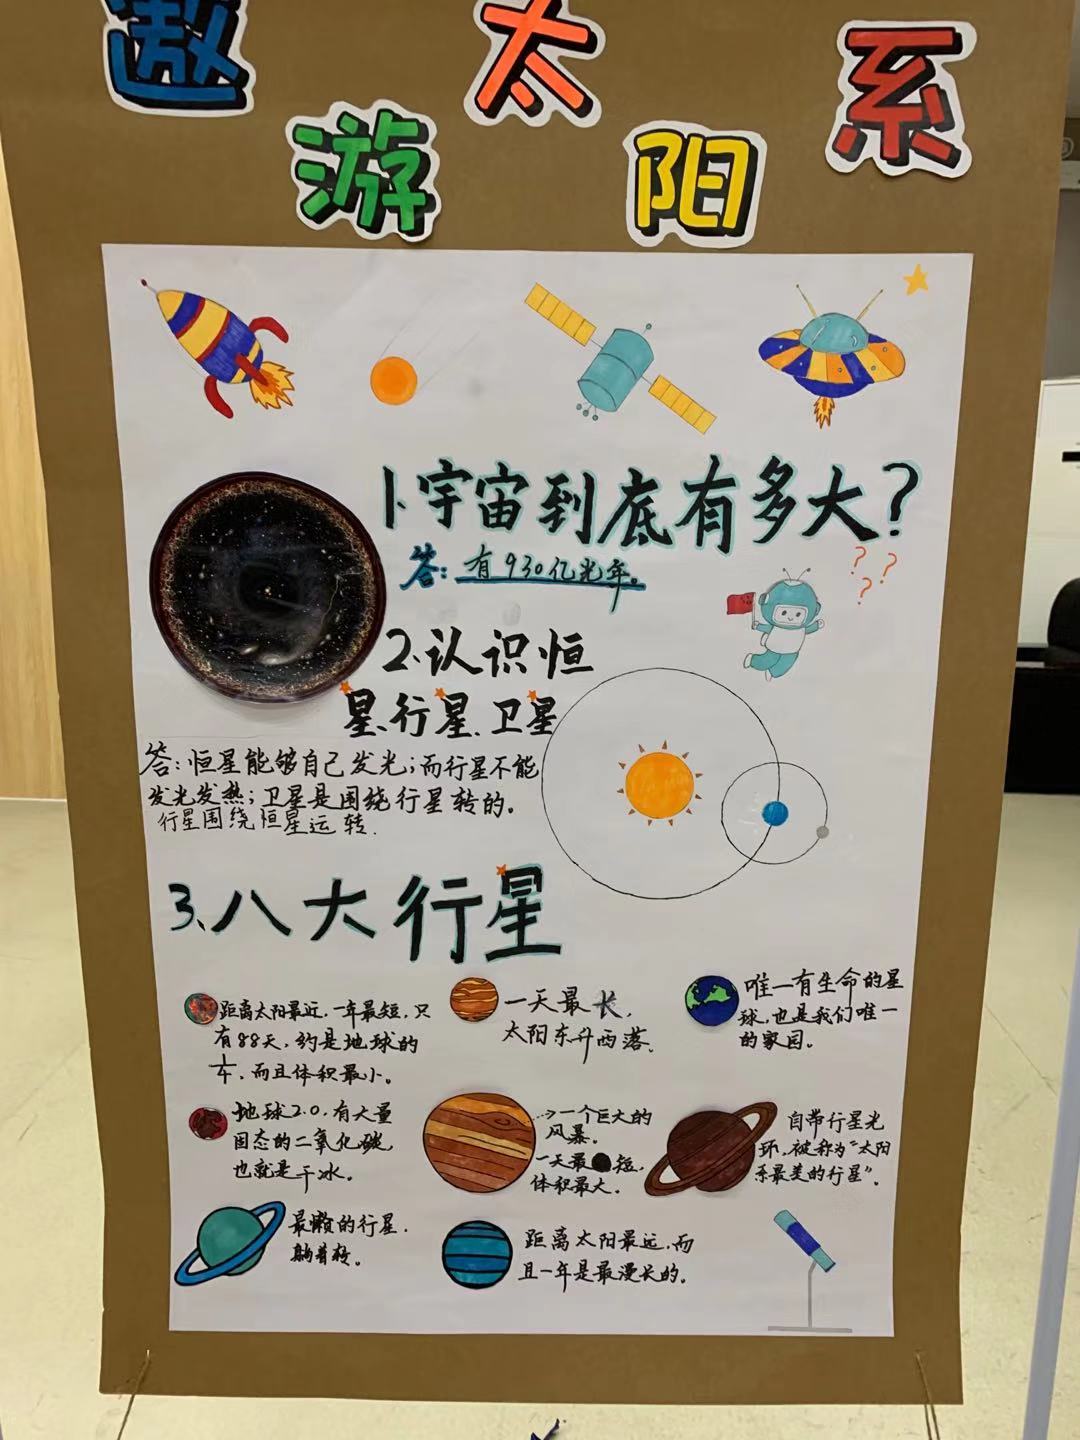 遨游太阳系
1、宇宙到底有多大?
答:有930亿光年。
???
2、认识恒
星、行星、卫星
答:恒星能够自己发光;而行星不能
发光发热;卫星是围绕行星转的。
行星围绕恒星运转.
3、八大行星
距离太阳最近,一年最短,只
有88天,约是地球的
¼,而且体积最小。
一天最长,
太阳东升西落.
唯一有生命的星
球,也是我们唯一
的家园。
地球2.0,有大量
固态的二氧化碳,
也就是干冰。
一个巨大的
风暴。
一天最短,
体积最大。
自带行星光
环,被称为“太阳
系最美的行星”。
最懒的行星,
躺着转。
距离太阳最远,而
且一年是最漫长的。